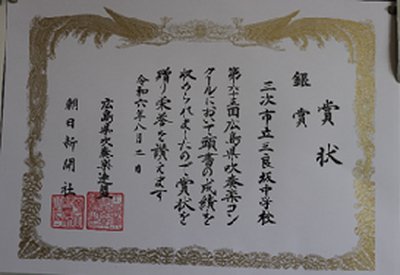 賞状
銀賞
三次市立三良坂中学校
第六十五回広島県吹奏楽コン
クールにおいて頭書の成績を
収められましたので賞状を
贈り栄誉を讃えます
令和六年八月二日
広島県吹奏楽連盟
朝日新聞社